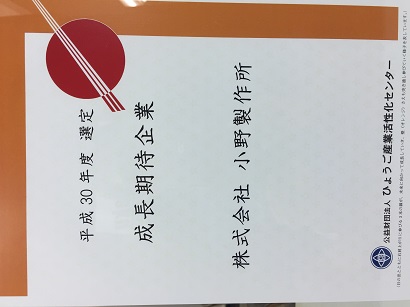 平成30年度 選定
成長期待企業
株式会社 小野製作所
公益財団法人 ひょうご産業活性化センター